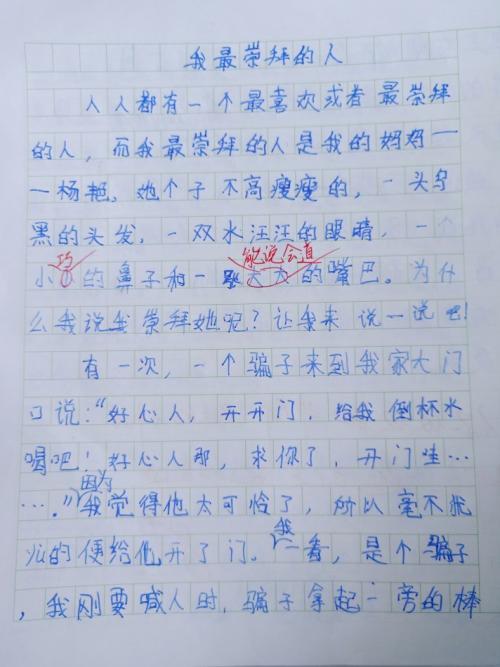 我最崇拜的人
人人都有一个最喜欢或者最崇拜
的人，而我最崇拜的人是我的妈妈一
一杨艳。她个子不高瘦瘦的，一头乌
黑的头发，一双水汪汪的眼睛，一个
巧 能说会道
小小的鼻子和一张大大的嘴巴。为什
么我说我崇拜她呢？让我来说一说吧！
有一次，一个骗子来到我家大门
口说：“好心人，开开门，给我倒杯水
喝吧！好心人那，求你了，开门哇…
因为
….”我觉得他太可怜了，所以毫不犹
我
心的便给他开了门。一看，是个骗子
，我刚要喊人时，骗子拿起一旁的棒